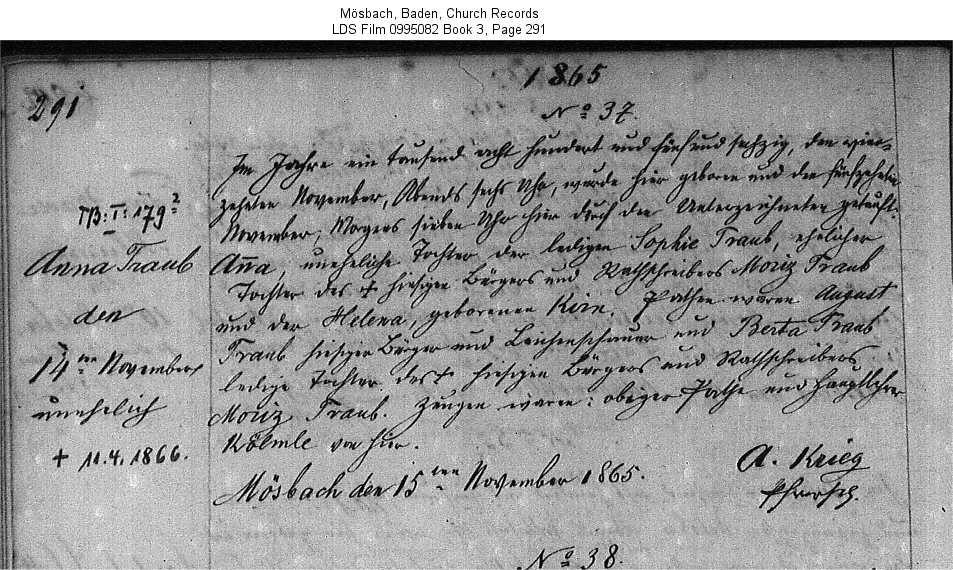 Mösbach, Baden, Church Records
LDS Film 0995082 Book 3, Page 291
1865
291
No 37.
Im Jahre ein tausend acht hundert und fünf und sechzig, den vier-
zehnten November, Abends sechs Uhr, wurde hier geboren und den fünfzehnten
November, Morgens sieben Uhr hier durch den Unterzeichneten getauft:
Anna, uneheliche Tochter der ledigen Sophie Traub, ehelicher
Tochter des † hiesigen Bürgers und Rathschreibers Moriz Traub
und der Helena, geborenen Kirn. Pathen waren August
Traub hiesiger Bürger und Leichenschauer und Berta Traub
ledige Tochter des † hiesigen Bürgers und Rathschreibers
Moriz Traub. Zeugen waren: obiger Pathe und Hauptlehrer
von hier.
Mösbach den 15ten November 1865.
A. Krieg
TB: I: 179²
Anna Traub
den
14ten November
unehelich
+ 11.4.1866.
No 38.